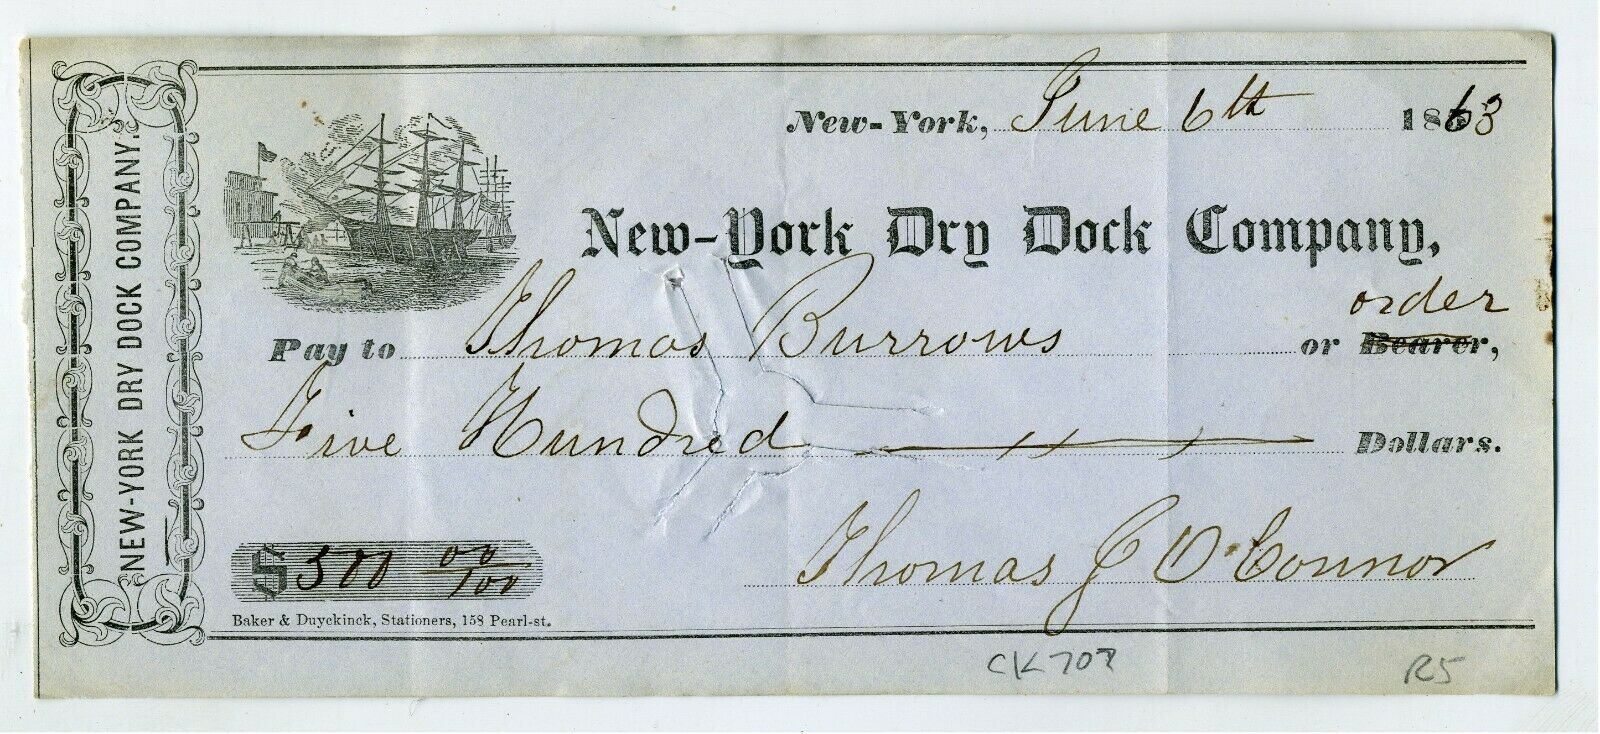 NEW-YORK DRY DOCK COMPANY.
New-York, June 6th 1863
New-York Dry Dock Company,
order
Pay to Thomas Burrows or Bearer,
Five Hundred Dollars.
$ 500 00/100
Thomas J O'Connor
Baker & Duyckinck, Stationers, 158 Pearl-st.
CK707
R5